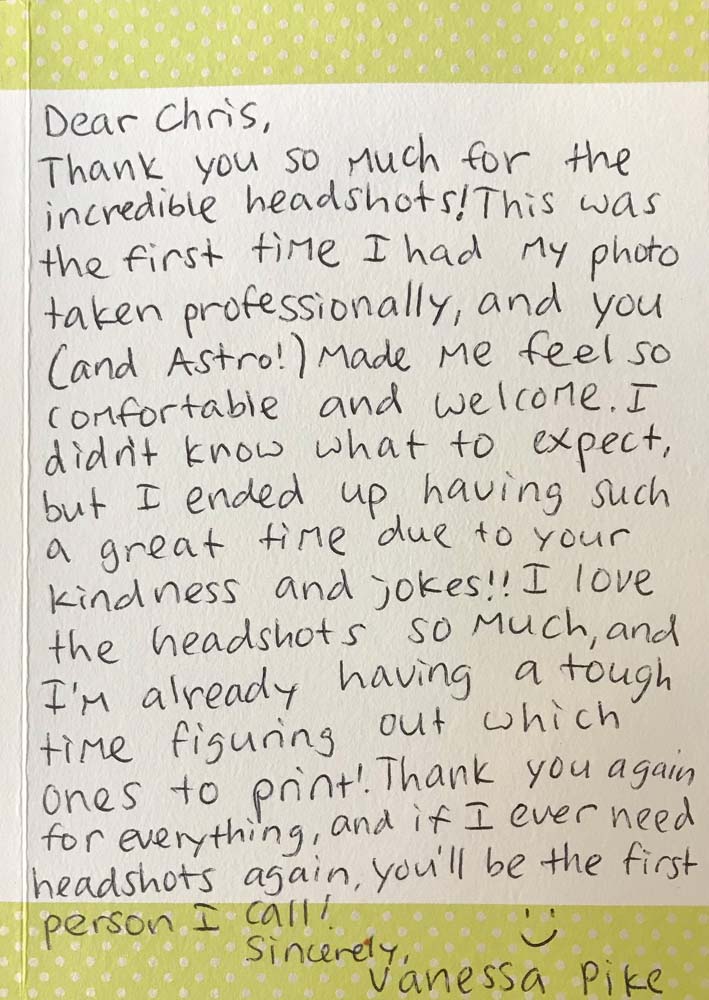 Dear Chris,
Thank you so much for the
incredible headshots! This was
the first time I had my photo
taken professionally, and you
(and Astro!) made me feel so
comfortable and welcome. I
didn't know what to expect,
but I ended up having such
a great time due to your
kindness and jokes!! I love
the headshots so much, and
I'm already having a tough
time figuring out which
ones to print! Thank you again
for everything, and if I ever need
headshots again, you'll be the first
person I call!
Sincerely, :)
Vanessa Pike